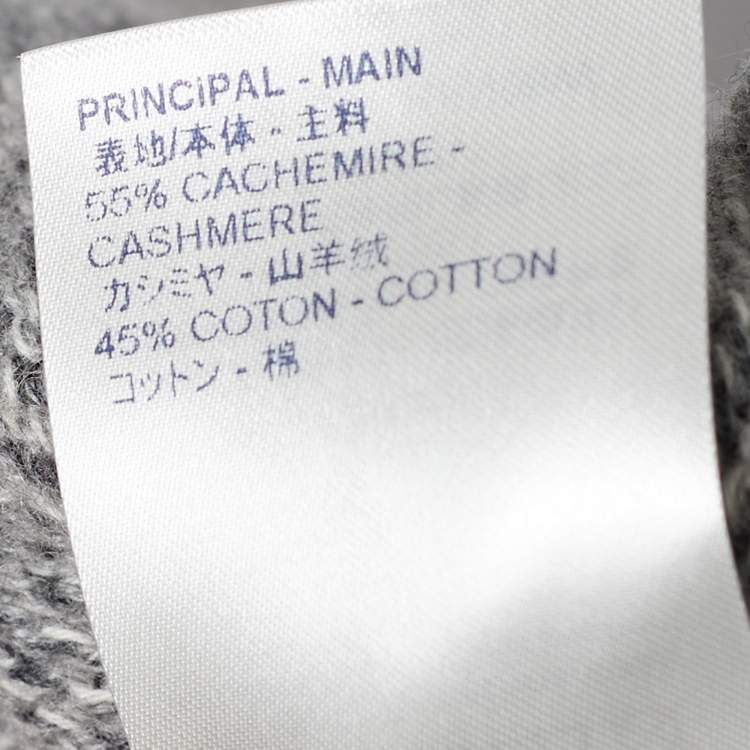 PRINCIPAL - MAIN
表地/本体 - 主料
55% CACHEMIRE -
CASHMERE
カシミヤ - 山羊绒
45% COTON - COTTON
コットン - 棉